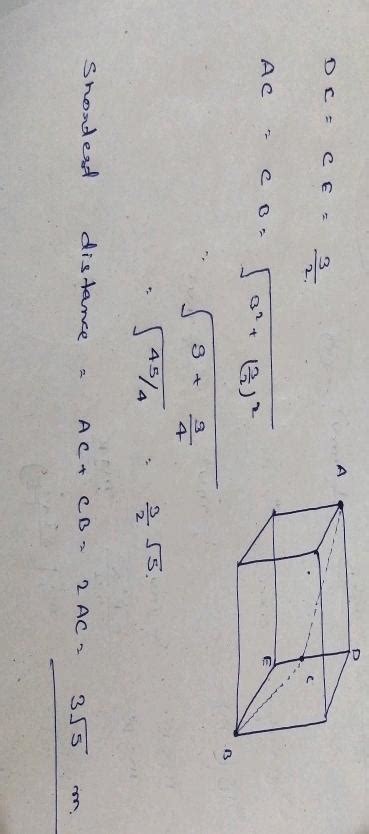 DC = CE = 3/2.
AC = CB = √(3² + (3/2)²)
= √(9 + 9/4)
= √(45/4) = 3/2 √5.
Shortest distance = AC + CB = 2AC = 3√5 m.
A
D
E
C
B